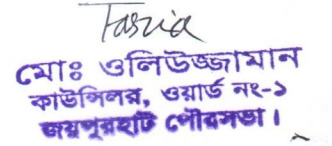 মোঃ ওলিউজ্জামান
কাউন্সিলর, ওয়ার্ড নং-১
জয়পুরহাট পৌরসভা।